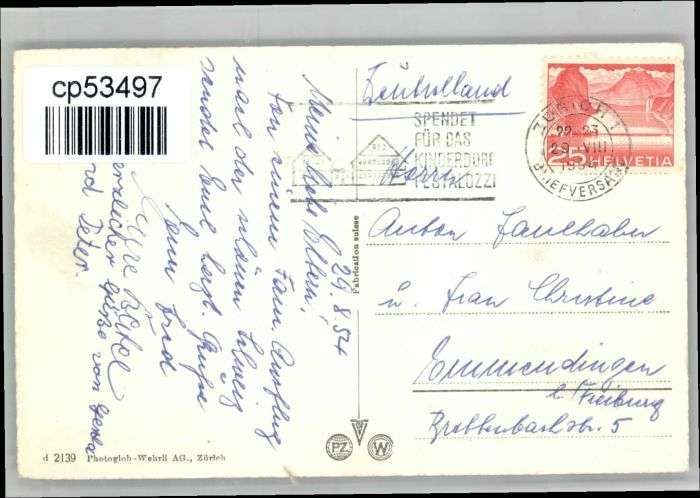 cp53497
29.8.54
Meine liebe Eltern!
Von einem Farn. Ausflug
nach der schönen Schweiz
sendet Euch herzl. Grüße
Fred
herzlicher Grüße von
und Peter.
Fabrication suisse
d 2139 Photoglob-Wehrli AG., Zürich
PZ W
SPENDET
FÜR DAS
KINDERDORF
PESTALOZZI
ZÜRICH 1
22-23
29.VIII
1954
BRIEFVERSAND
25 HELVETIA
Herrn
Anton Faulhaber
u. Frau Christine
Emmendingen
b/Freiburg
Brettenbachstr. 5